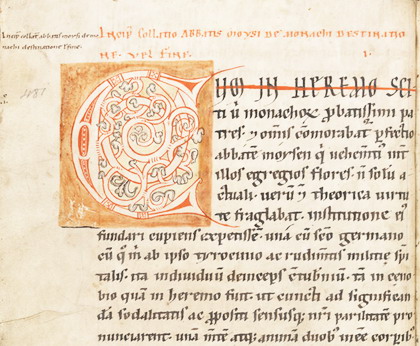 Incip collat abbatis moysi de mo
nachi destinatione l fine.
Incip Collatio Abbatis Moysi De Monachi Destinatio
ne vel fine. I.
CUM IN HEREMO SCI
ti ũ monachoꝝ ꝓbatissimi pa
tres ⁊ omĩs cõmorabat ꝑfectio
abbatẽ moysen q̃ uehemẽti
illos egregios flores ñ solũ a
ctuali, uerũ ⁊ theorica uirtu
te fraglabat. institutione ei᷒
fundari cupiens expetissẽ. unã cũ sc̃o germano
cũ q̃ m̃ ab ipso tyrocinio ac rudimẽtis militię spi
talis. ita indiuiduũ deinceps cõtubniũ. tã in ceno
bio quã in heremo fuit. ut cuncti ad significan
dã sodalitatis ac ꝓpositi parilitatẽ pro
nunciarent. unã mẽte atq; animã duob᷒ inẽe corporib᷒